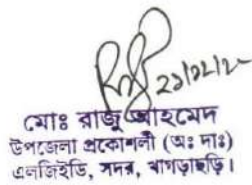 মোঃ রাজু আহমেদ
উপজেলা প্রকোশলী (অঃ দাঃ)
এলজিইডি, সদর, খাগড়াছড়ি।